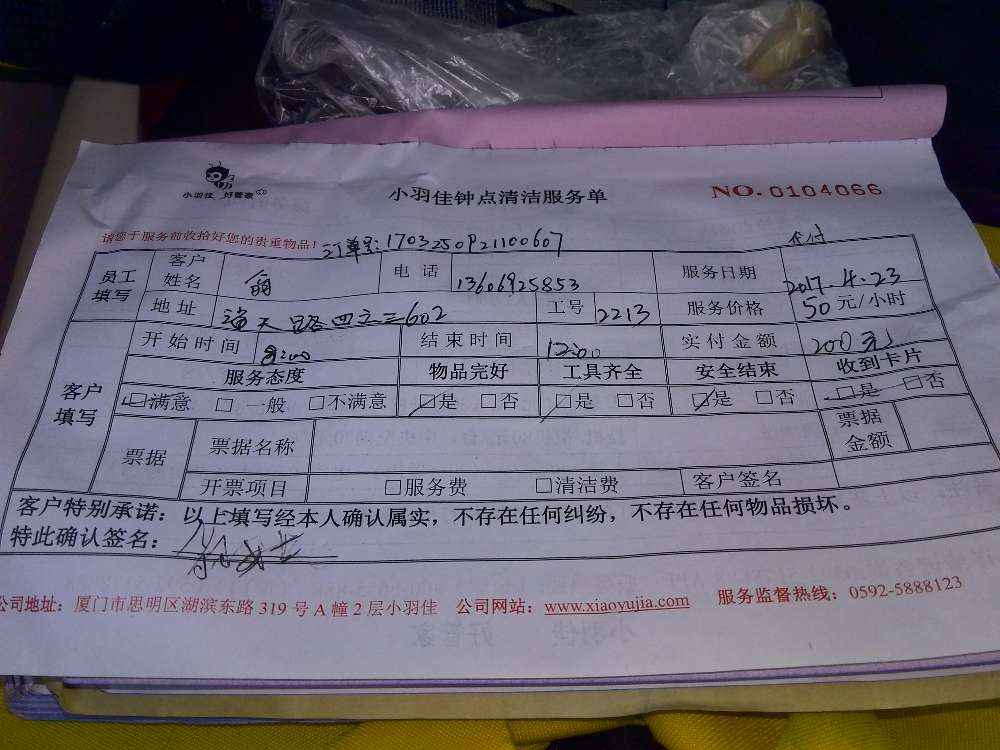 小羽佳 好管家
小羽佳钟点清洁服务单
NO. 0104066
请您于服务前收拾好您的贵重物品！
订单号: 1703250921100607
代付
员工填写 客户姓名 电话 13606925853 服务日期 2017.4.23
地址 海天路四之三602 工号 2213 服务价格 50元/小时
客户填写 开始时间 8:00 结束时间 12:00 实付金额 200元
服务态度 物品完好 工具齐全 安全结束 收到卡片
☑满意 □一般 □不满意 ☑是 □否 ☑是 □否 ☑是 □否 ☑是 □否
票据 票据名称 票据金额
开票项目 □服务费 □清洁费 客户签名
客户特别承诺：以上填写经本人确认属实，不存在任何纠纷，不存在任何物品损坏。
特此确认签名：
公司地址：厦门市思明区湖滨东路 319 号 A 幢 2 层小羽佳 公司网站：www.xiaoyujia.com 服务监督热线：0592-5888123